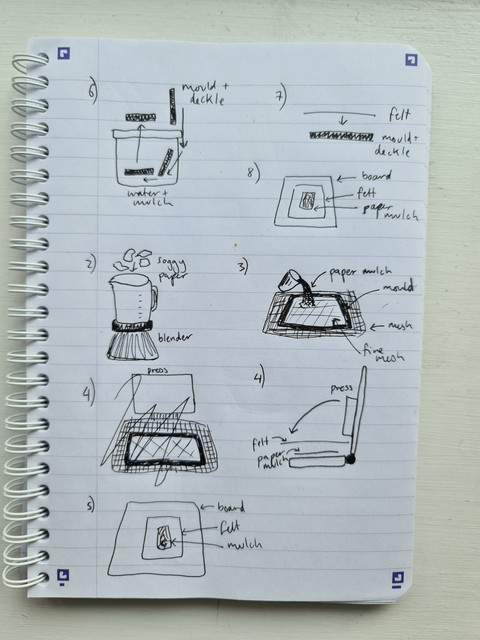 6)
mould +
deckle
water +
mulch
7)
felt
mould +
deckle
8)
board
felt
paper
mulch
2)
soggy
paper
blender
3)
paper mulch
mould
mesh
fine
mesh
4)
press
4)
press
felt
paper
mulch
5)
board
felt
mulch